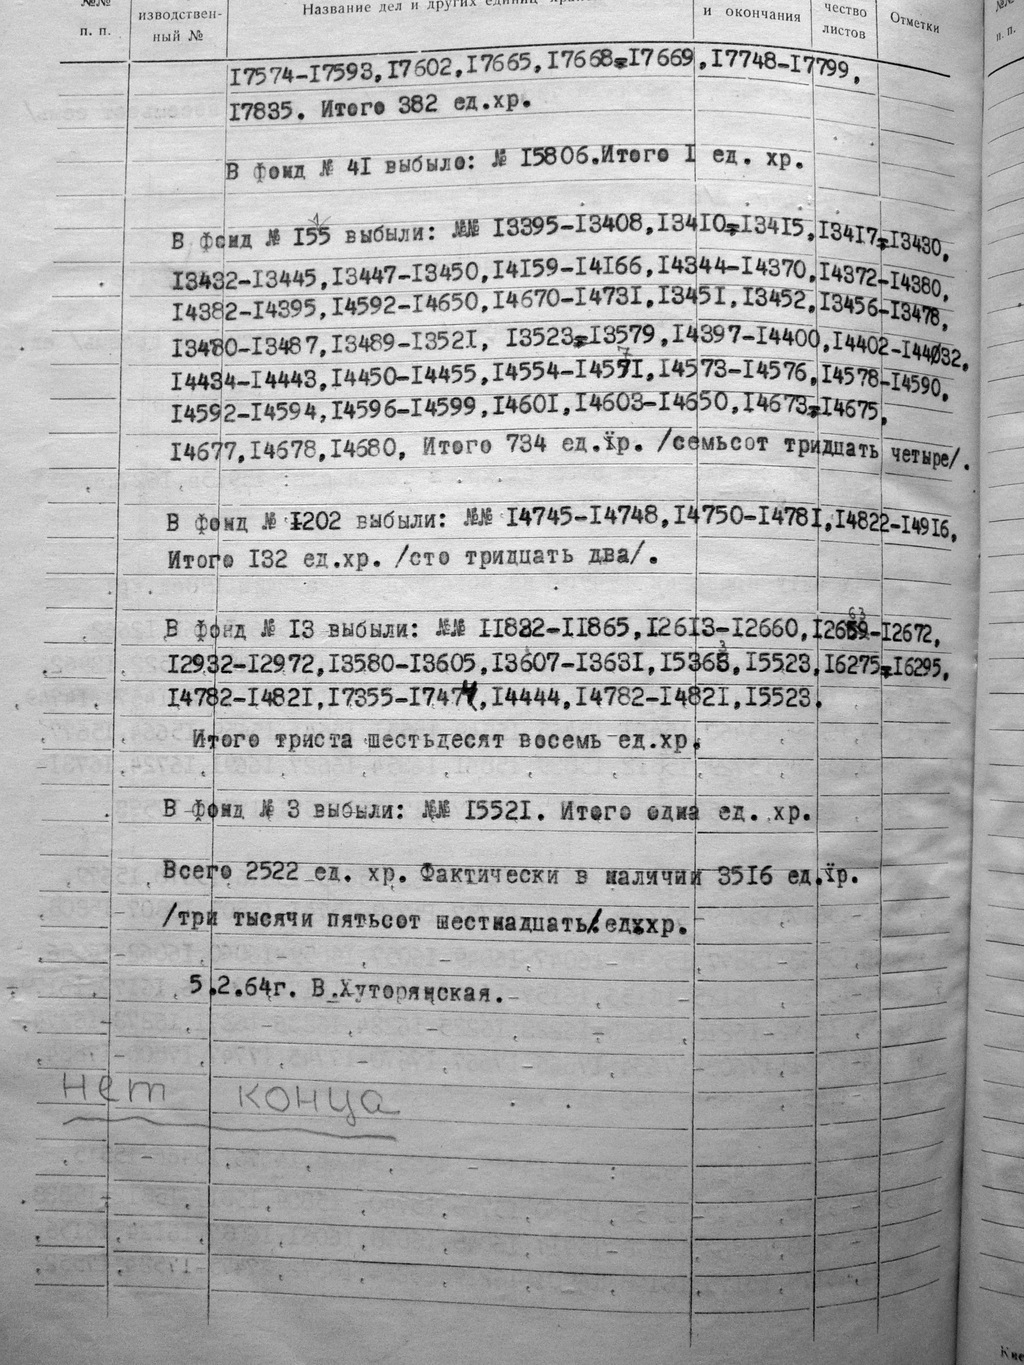 №№
п. п.
изводствен-
ный №
Название дел и других единиц
и окончания
чество
листов
Отметки
№№
п. п.
I7574-I7593,I7602,I7665,I7668-I7669,I7748-I7799,
I7835. Итого 382 ед.хр.
В фонд № 4I выбыло: № I5806.Итого I ед. хр.
В фонд № I55 выбыли: №№ I3395-I3408,I34IO-I34I5,I34I7-I3430,
I3432-I3445,I3447-I3450,I4I59-I4I66,I4344-I4370,I4372-I4380,
I4382-I4395,I4592-I4650,I4670-I473I,I345I,I3452,I3456-I3478,
I3480-I3487,I3489-I352I, I3523-I3579,I4397-I4400,I4402-I44032,
I4434-I4443,I4450-I4455,I4554-I457I,I4573-I4576,I4578-I4590,
I4592-I4594,I4596-I4599,I460I,I4603-I4650,I4673-I4675,
I4677,I4678,I4680, Итого 734 ед.їр. /семьсот тридцать четыре/.
В фонд № I202 выбыли: №№ I4745-I4748,I4750-I478I,I4822-I49I6,
Итого I32 ед.хр. /сто тридцать два/.
В фонд № I3 выбыли: №№ II832-II865,I26I3-I2660,I2663-I2672,
I2932-I2972,I3580-I3605,I3607-I363I,I5363,I5523,I6275-I6295,
I4782-I482I,I7355-I7474,I4444,I4782-I482I,I5523.
Итого триста шестьдесят восемь ед.хр.
В фонд № 3 выбыли: №№ I552I. Итого одна ед. хр.
Всего 2522 ед. хр. Фактически в наличии 35I6 ед.їр.
/три тысячи пятьсот шестнадцать/.ед.хр.
5.2.64г. В.Хуторянская.
нет конца